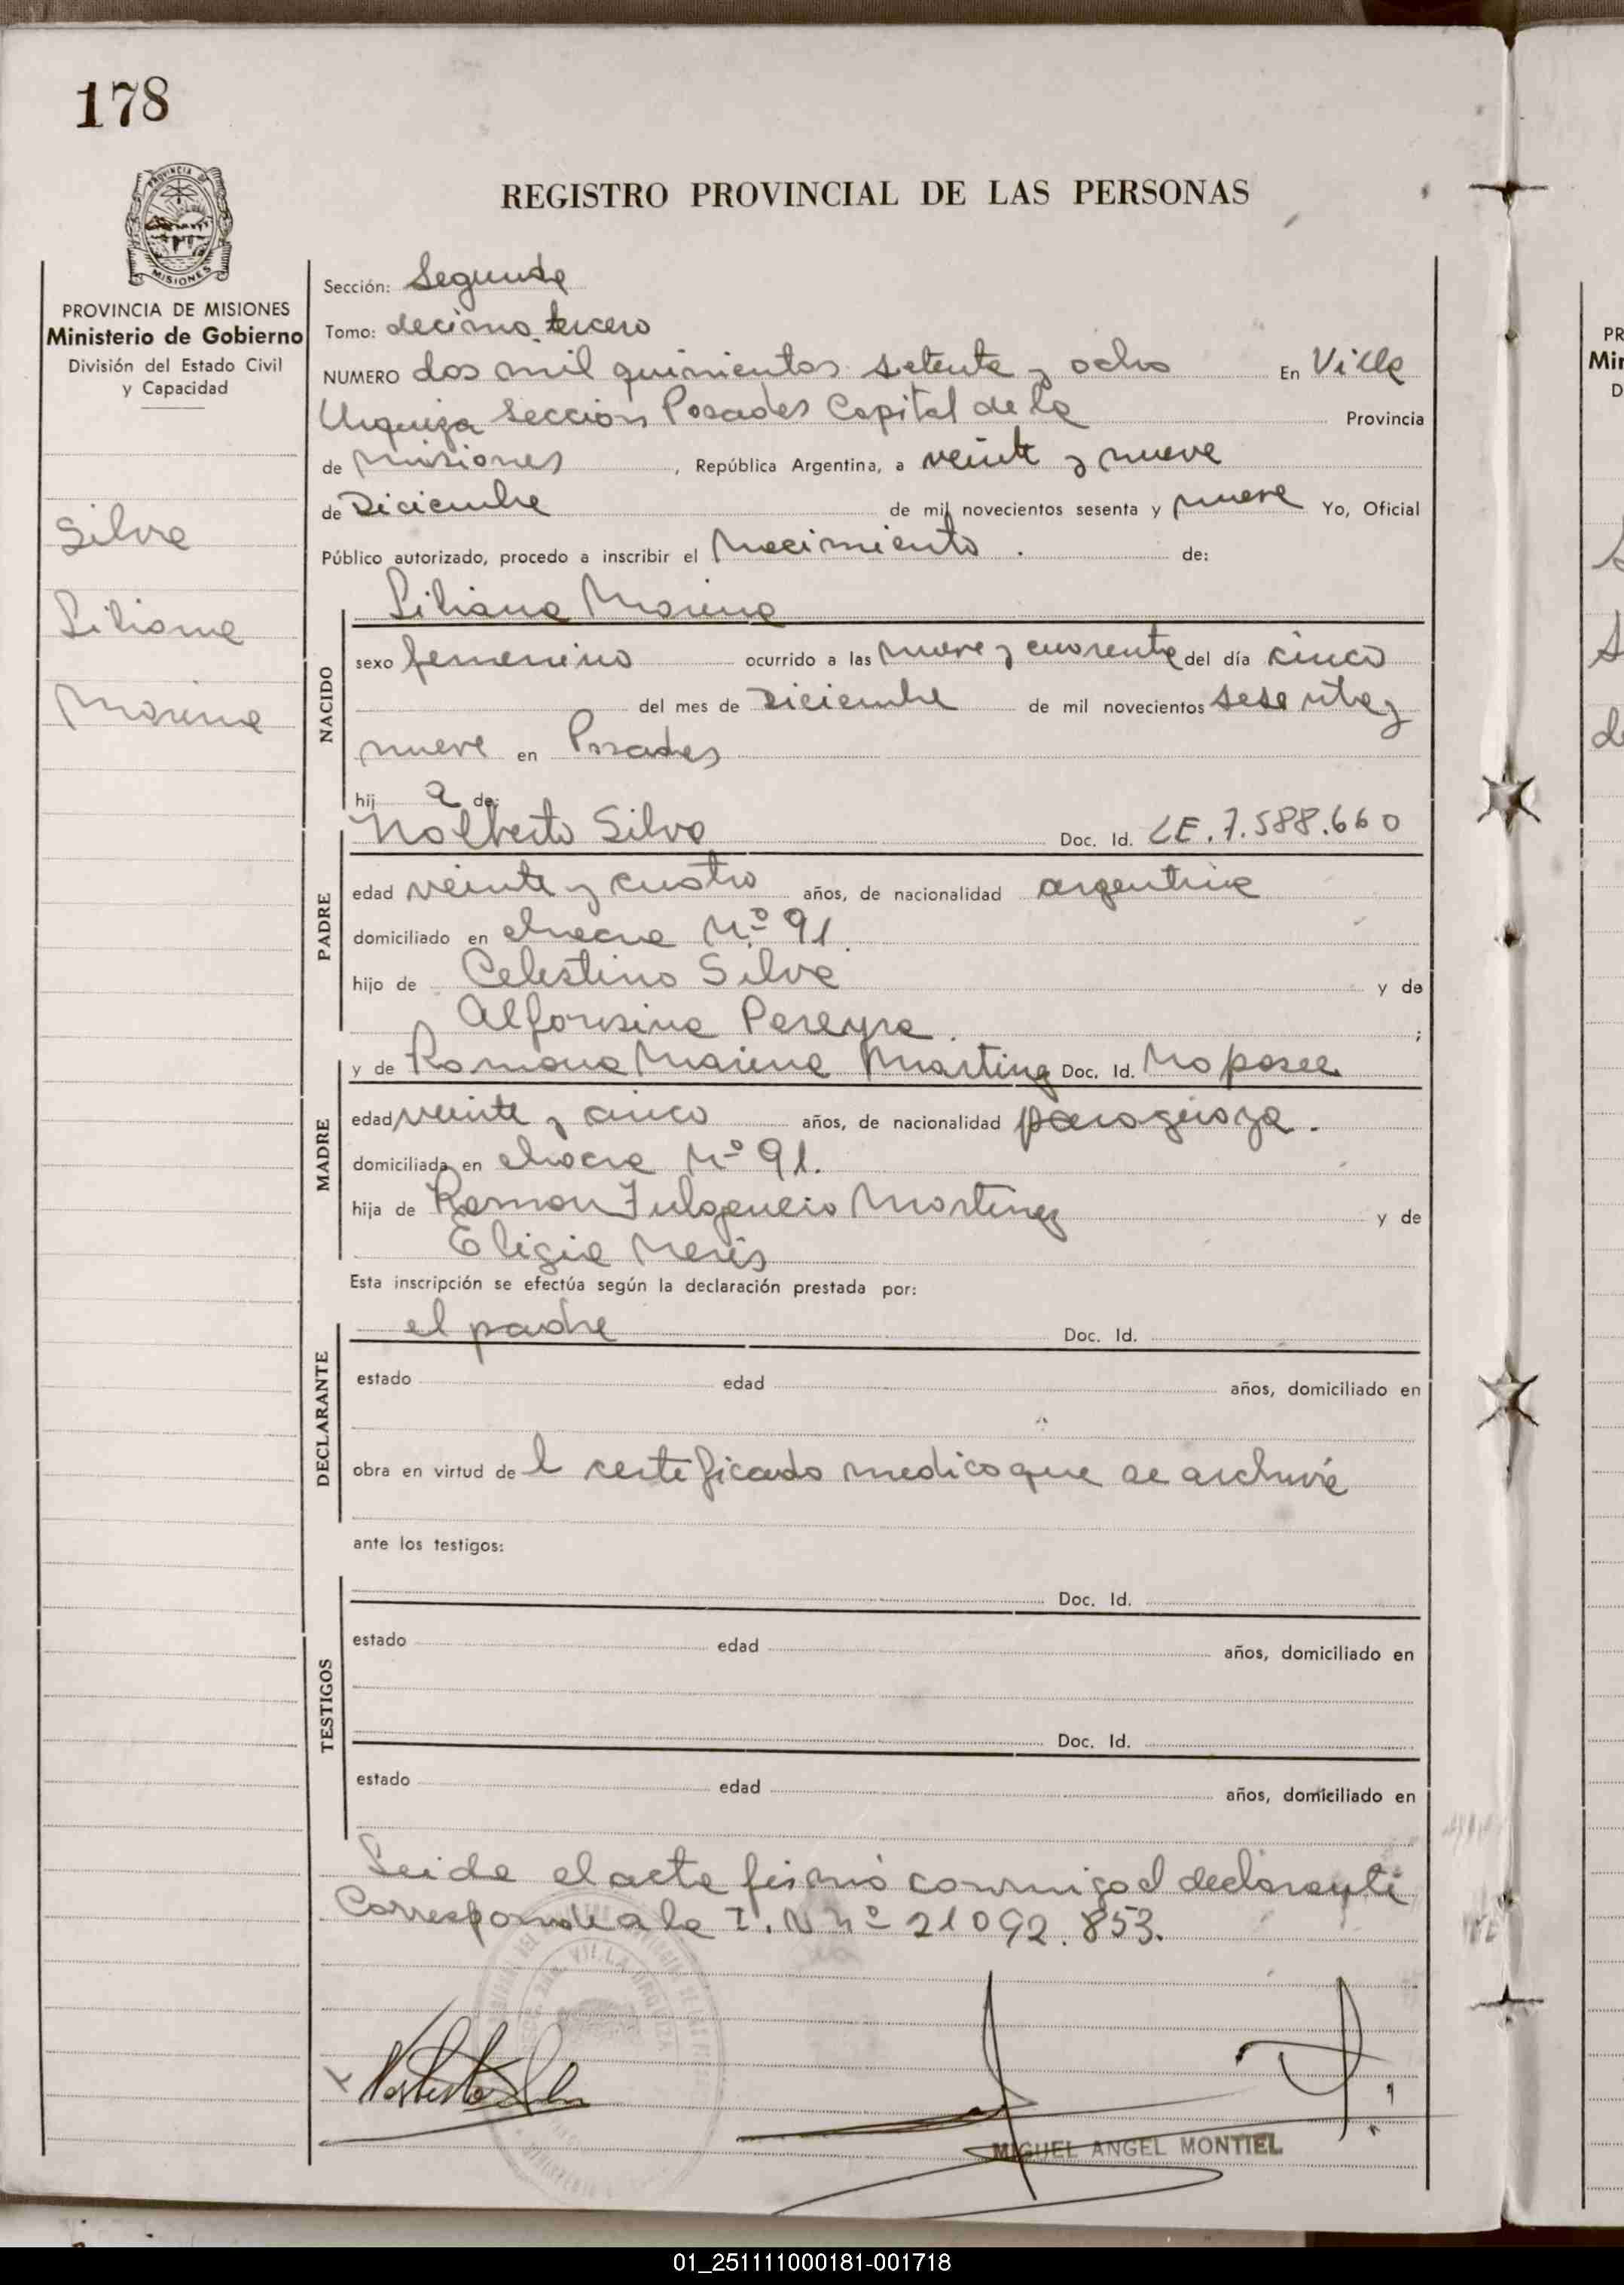 178
REGISTRO PROVINCIAL DE LAS PERSONAS
PROVINCIA DE
MISIONES
PROVINCIA DE MISIONES
Ministerio de Gobierno
División del Estado Civil
y Capacidad
Silva
Liliana
Marina
Sección: Segunda
Tomo: decimo tercero
NUMERO dos mil quinientos setenta y ocho En Villa
Urquiza Sección Posadas Capital de la Provincia
de Misiones, República Argentina, a veinte y nueve
de Diciembre de mil novecientos sesenta y nueve Yo, Oficial
Público autorizado, procedo a inscribir el Nacimiento. de:
Liliana Marina
NACIDO
sexo femenino ocurrido a las nueve y cuarenta del día cinco
del mes de Diciembre de mil novecientos sesenta y
nueve en Posadas
hij a de:
Nolberto Silva Doc. Id. LE. 7.588.660
PADRE
edad veinte y cuatro años, de nacionalidad argentina
domiciliado en chacra Nº 91.
hijo de Celestino Silva y de
Alfonsina Pereyra ;
y de Ramona Marina Martinez Doc. Id. No posee
MADRE
edad veinte y cinco años, de nacionalidad paraguaya.
domiciliada en chacra Nº 91.
hija de Ramon Fulogencio Martinez y de
Eligia
Esta inscripción se efectúa según la declaración prestada por:
el padre Doc. Id.
DECLARANTE
estado edad años, domiciliado en
obra en virtud de l certificado medico que se archiva
ante los testigos:
Doc. Id.
TESTIGOS
estado edad años, domiciliado en
Doc. Id.
estado edad años, domiciliado en
Leida el acta firmó conmigo el declarante
Corresponde a la I. N nº 21092.853.
VILLA URQUIZA
MIGUEL ANGEL MONTIEL
01_251111000181-001718